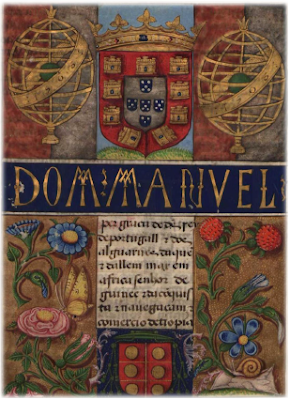 DOM MANVEL
per graca de
de portugall & dos
alguarues daquē
& dallem mar em
africa senhor de
guinee & da cōquis
ta & nauegacam
comercio detiopia